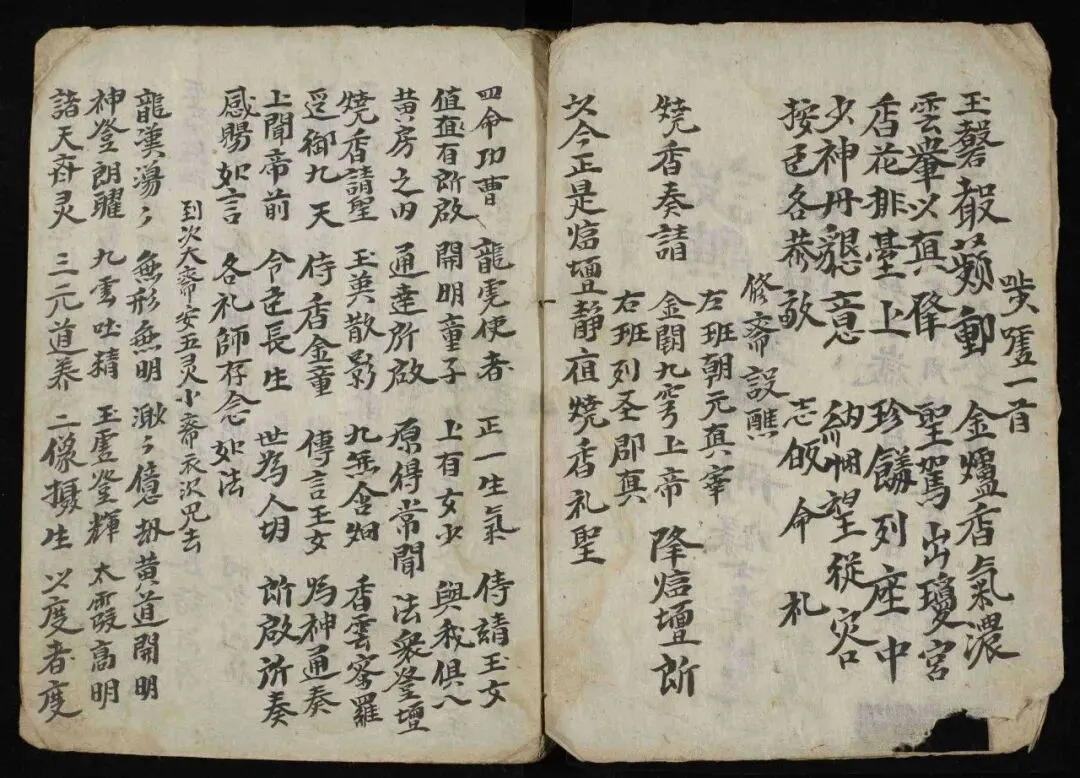 步虛一首
玉磬聲頻動 金爐香氣濃
雲輦以真降 聖駕出瓊宮
香花排臺上 珍饈列座中
少神丹懇意 納惘望從容
按邑各恭敬 志皈命礼
修斋設醮
左班朝元真宰
燒香奏請 金闕九穹上帝 降臨壇所
右班列圣郡真
以今正是臨壇靜夜燒香礼聖
四命功曹 龍虎使者 正一生氣 侍靖玉女
值直有所啟 開明童子 上有女少 與我俱入
黃房之内 通達所啟 原得常聞 法衆登壇
燒香請聖 玉英散影 九無含烟 香雲密羅
逕御九天 侍香金童 傳言玉女 為神通奏
上聞帝前 令臣長生 世為人胡 所啟所奏
感賜如言 各礼師存念如法
到次大斋安五灵小斋衣次咒去
龍漢湯〻 無形無明 渺〻億刼 黃道開明
神登朗曜 九雲吐精 玉虛登輝 太霞高明
諸天齐灵 三元道养 二像攝生 以度者度